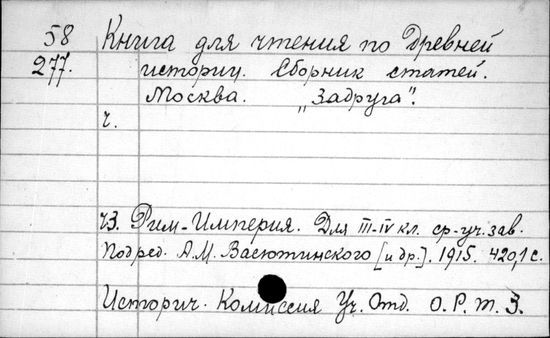 58 Книга для чтения по Древней
277. истории. Сборник статей.
Москва. „Задруга".
ч.
ч3. Рим-Империя. Для III-IV кл. ср-уч. зав.
Под ред. А.М. Васютинского [и др.]. 1915. 420,1 с.
Историч. Комиссия Уч. Отд. О.Р.Т.З.